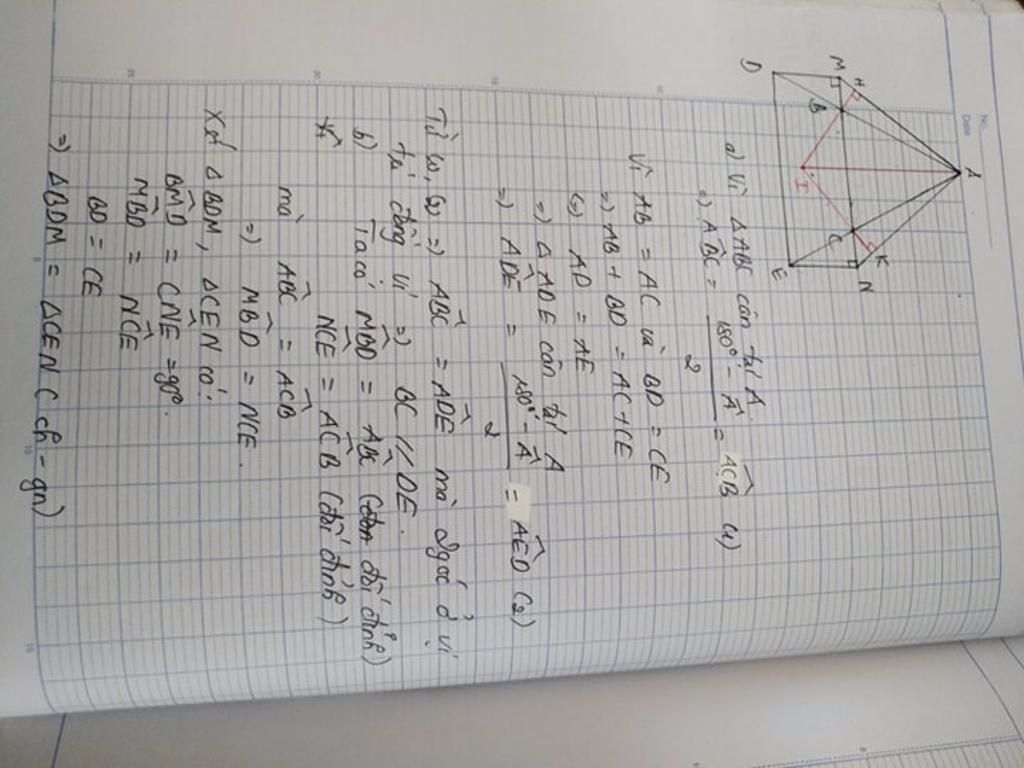 No.
Date
A
M
H
D
B
I
C
K
N
E
a) Vì ΔABC cân tại A
=) A͡BC = (180° - Â)/2 = A͡CB (1)
Vì AB = AC và BD = CE
=) AB + BD = AC + CE
(=) AD = AE
=) ΔADE cân tại A
=) A͡DE = (180° - Â)/2 = A͡ED (2)
Từ (1), (2) =) A͡BC = A͡DE mà 2 góc ở vị
trí đồng vị =) BC // DE.
b) Ta có M͡BD = A͡BC (đối đỉnh)
N͡CE = A͡CB (đối đỉnh)
mà A͡BC = A͡CB
=) M͡BD = N͡CE.
Xét ΔBDM, ΔCEN có:
B͡MD = C͡NE = 90°.
M͡BD = N͡CE
BD = CE
=) ΔBDM = ΔCEN (ch - gn)